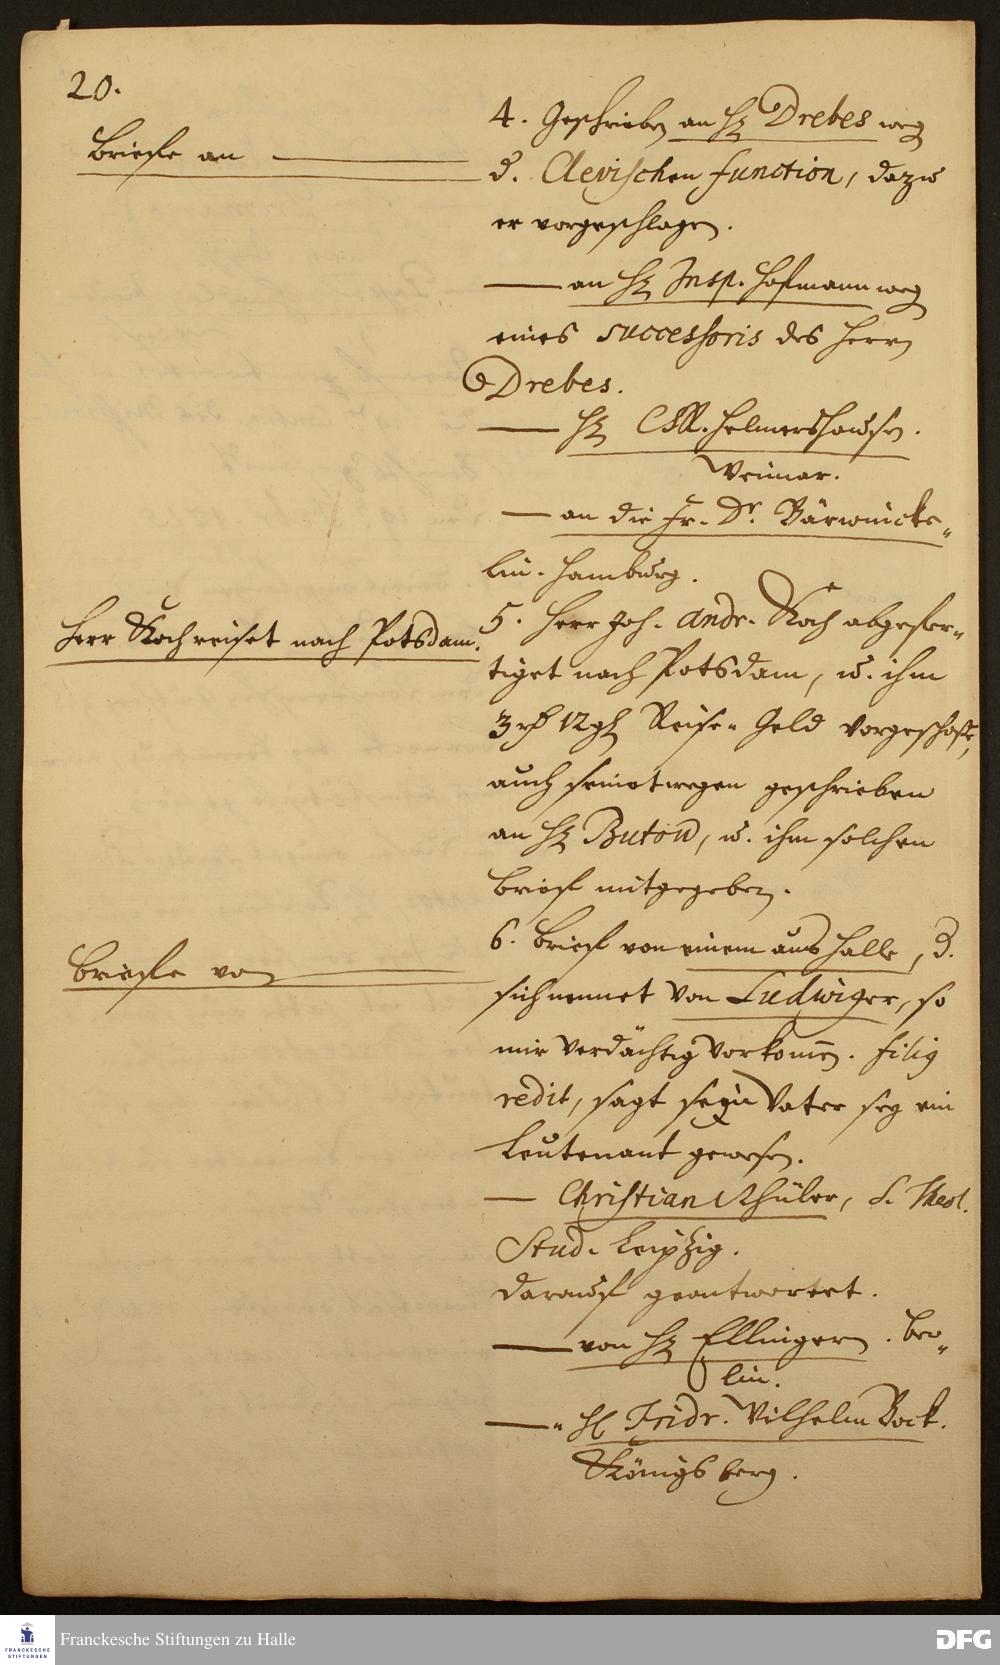 20.
Briefe an
4. Geschrieben an H. Drebes weg
d. Clevischen function, dazu
er vorgeschlagen.
— an H. Insp. Hofmann weg
eines successoris des Herrn
Drebes.
— H. CR. Helmershausen.
Weimar.
— an die Fr. Dr. Bärwinke-
lin. Hamburg.
Herr Koch reiset nach Potsdam.
5. Herr Joh. Andr. Koch abgefer-
tiget nach Potsdam, u. ihm
3 rh 12 gl Reise-Geld vorgeschoße,
auch seinetwegen geschrieben
an H. Butow, u. ihm solchen
Brief mitgegeben.
Briefe von
6. Brief von einem aus Halle, d.
sich nennet von Ludwiger, so
mir verdächtig vorkom̄en.
redit, sagt sein Vater sey ein
Leutenant gewesen.
— Christian Thüler, S. Theol.
Stud. Leipzig.
darauf geantwortet.
— von H. Ellinger. Ber-
lin.
— H. Fridr. Wilhelm Bock.
Königsberg.
Franckesche Stiftungen zu Halle
FRANCKESCHE
STIFTUNGEN
DFG